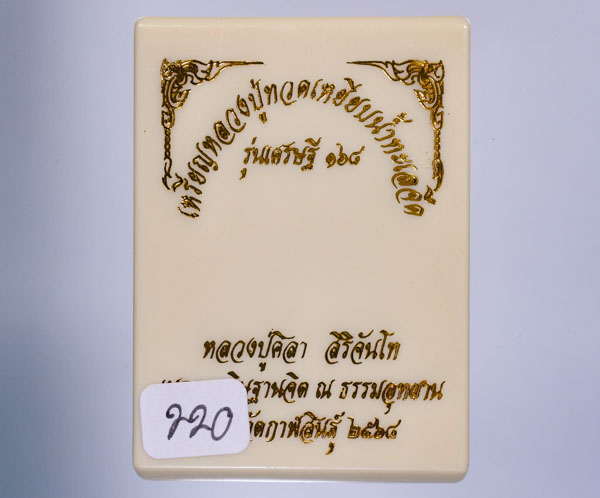 เหรียญหลวงปู่ทวดเหยียบน้ำทะเลจืด
รุ่นเศรษฐี ๑๖๘
หลวงปู่ศิลา สิริจันโท
ณ ธรรมอุทยาน
กาฬสินธุ์ ๒๕๖๘
220